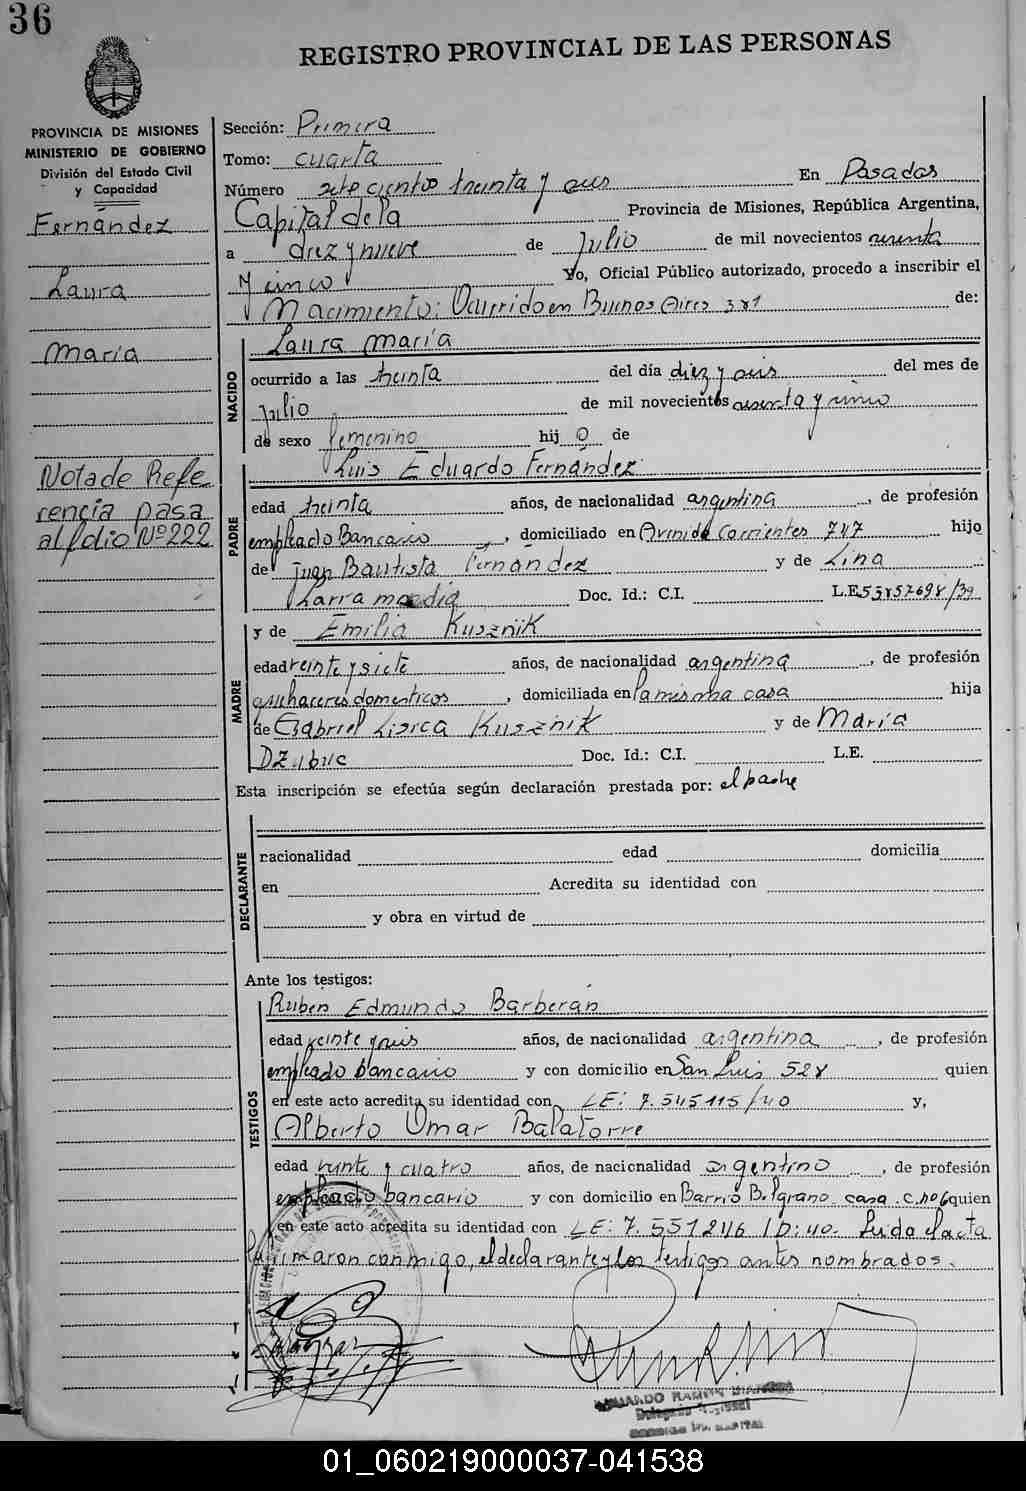 36
REGISTRO PROVINCIAL DE LAS PERSONAS
PROVINCIA DE MISIONES
MINISTERIO DE GOBIERNO
División del Estado Civil
y Capacidad
Fernández
Laura
María
Nota de Refe
rencia pasa
al folio Nº 222
Sección: Primera
Tomo: cuarta
Número sete cientos treinta y seis En Posadas
Capital de la Provincia de Misiones, República Argentina,
a diez y nueve de Julio de mil novecientos sesenta
y cinco Yo, Oficial Público autorizado, procedo a inscribir el
Nacimiento: Ocurrido en Buenos Aires 381 de:
NACIDO
Laura María
ocurrido a las treinta del día diez y seis del mes de
Julio de mil novecientos sesenta y cinco
de sexo femenino hij a de
PADRE
Luis Eduardo Fernández
edad treinta años, de nacionalidad argentina, de profesión
empleado Bancario, domiciliado en Avenida Corrientes 747 hijo
de Juan Bautista Fernández y de Lina
Larramendia Doc. Id.: C.I. L.E.
MADRE
y de Emilia Kusznik
edad veinte y siete años, de nacionalidad argentina, de profesión
quehaceres domesticos, domiciliada en la misma casa hija
de Gabriel Kusznik y de María
Doc. Id.: C.I. L.E.
Esta inscripción se efectúa según declaración prestada por: el padre
DECLARANTE
racionalidad edad domicilia
en Acredita su identidad con
y obra en virtud de
Ante los testigos:
TESTIGOS
Rubén Edmundo Barberán
edad veinte y seis años, de nacionalidad argentina, de profesión
empleado bancario y con domicilio en San Luis 528 quien
en este acto acredita su identidad con LE: 7.545115/40 y,
Alberto Omar Balatorre
edad veinte y cuatro años, de nacionalidad argentino, de profesión
empleado bancario y con domicilio en Barrio Belgrano casa c. nº 6 quien
en este acto acredita su identidad con LE: 7.551246 /D:40. Leida el acta
la firmaron conmigo, el declarante y los testigos antes nombrados.
01_060219000037-041538